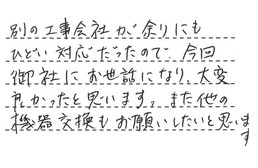 別の工事会社が余りにも
ひどい対応だったので今回
御社にお世話になり、大変
良かったと思います。また他の
機器交換もお願いしたいと思います